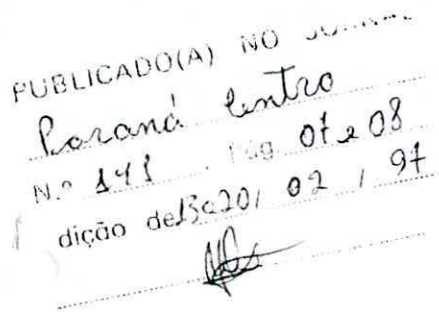 PUBLICADO(A) NO JORNAL
Paraná Centro
N.º 141 . Pág 07 e 08
dição de 13 a 20 / 02 / 97